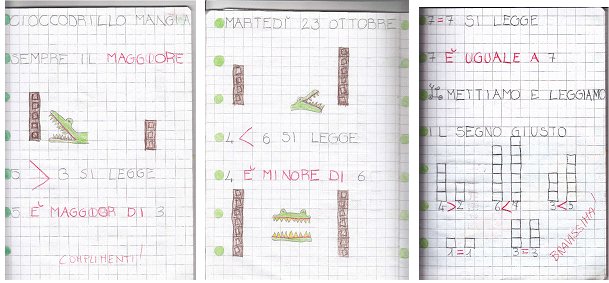 GIOCCODRILLO MANGIA
SEMPRE IL MAGGIORE
5 > 3 SI LEGGE
5 È MAGGIOR DI 3
COMPLIMENTI!
MARTEDÌ 23 OTTOBRE
4 < 6 SI LEGGE
4 È MINORE DI 6
7=7 SI LEGGE
7 È UGUALE A 7
METTIAMO E LEGGIAMO
IL SEGNO GIUSTO
4>2 6< 3<5
1=1 3=3
BRAVISSIMA!